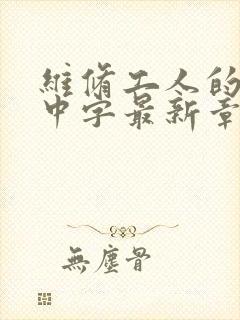 維脩工人的
中字最新章
無塵骨